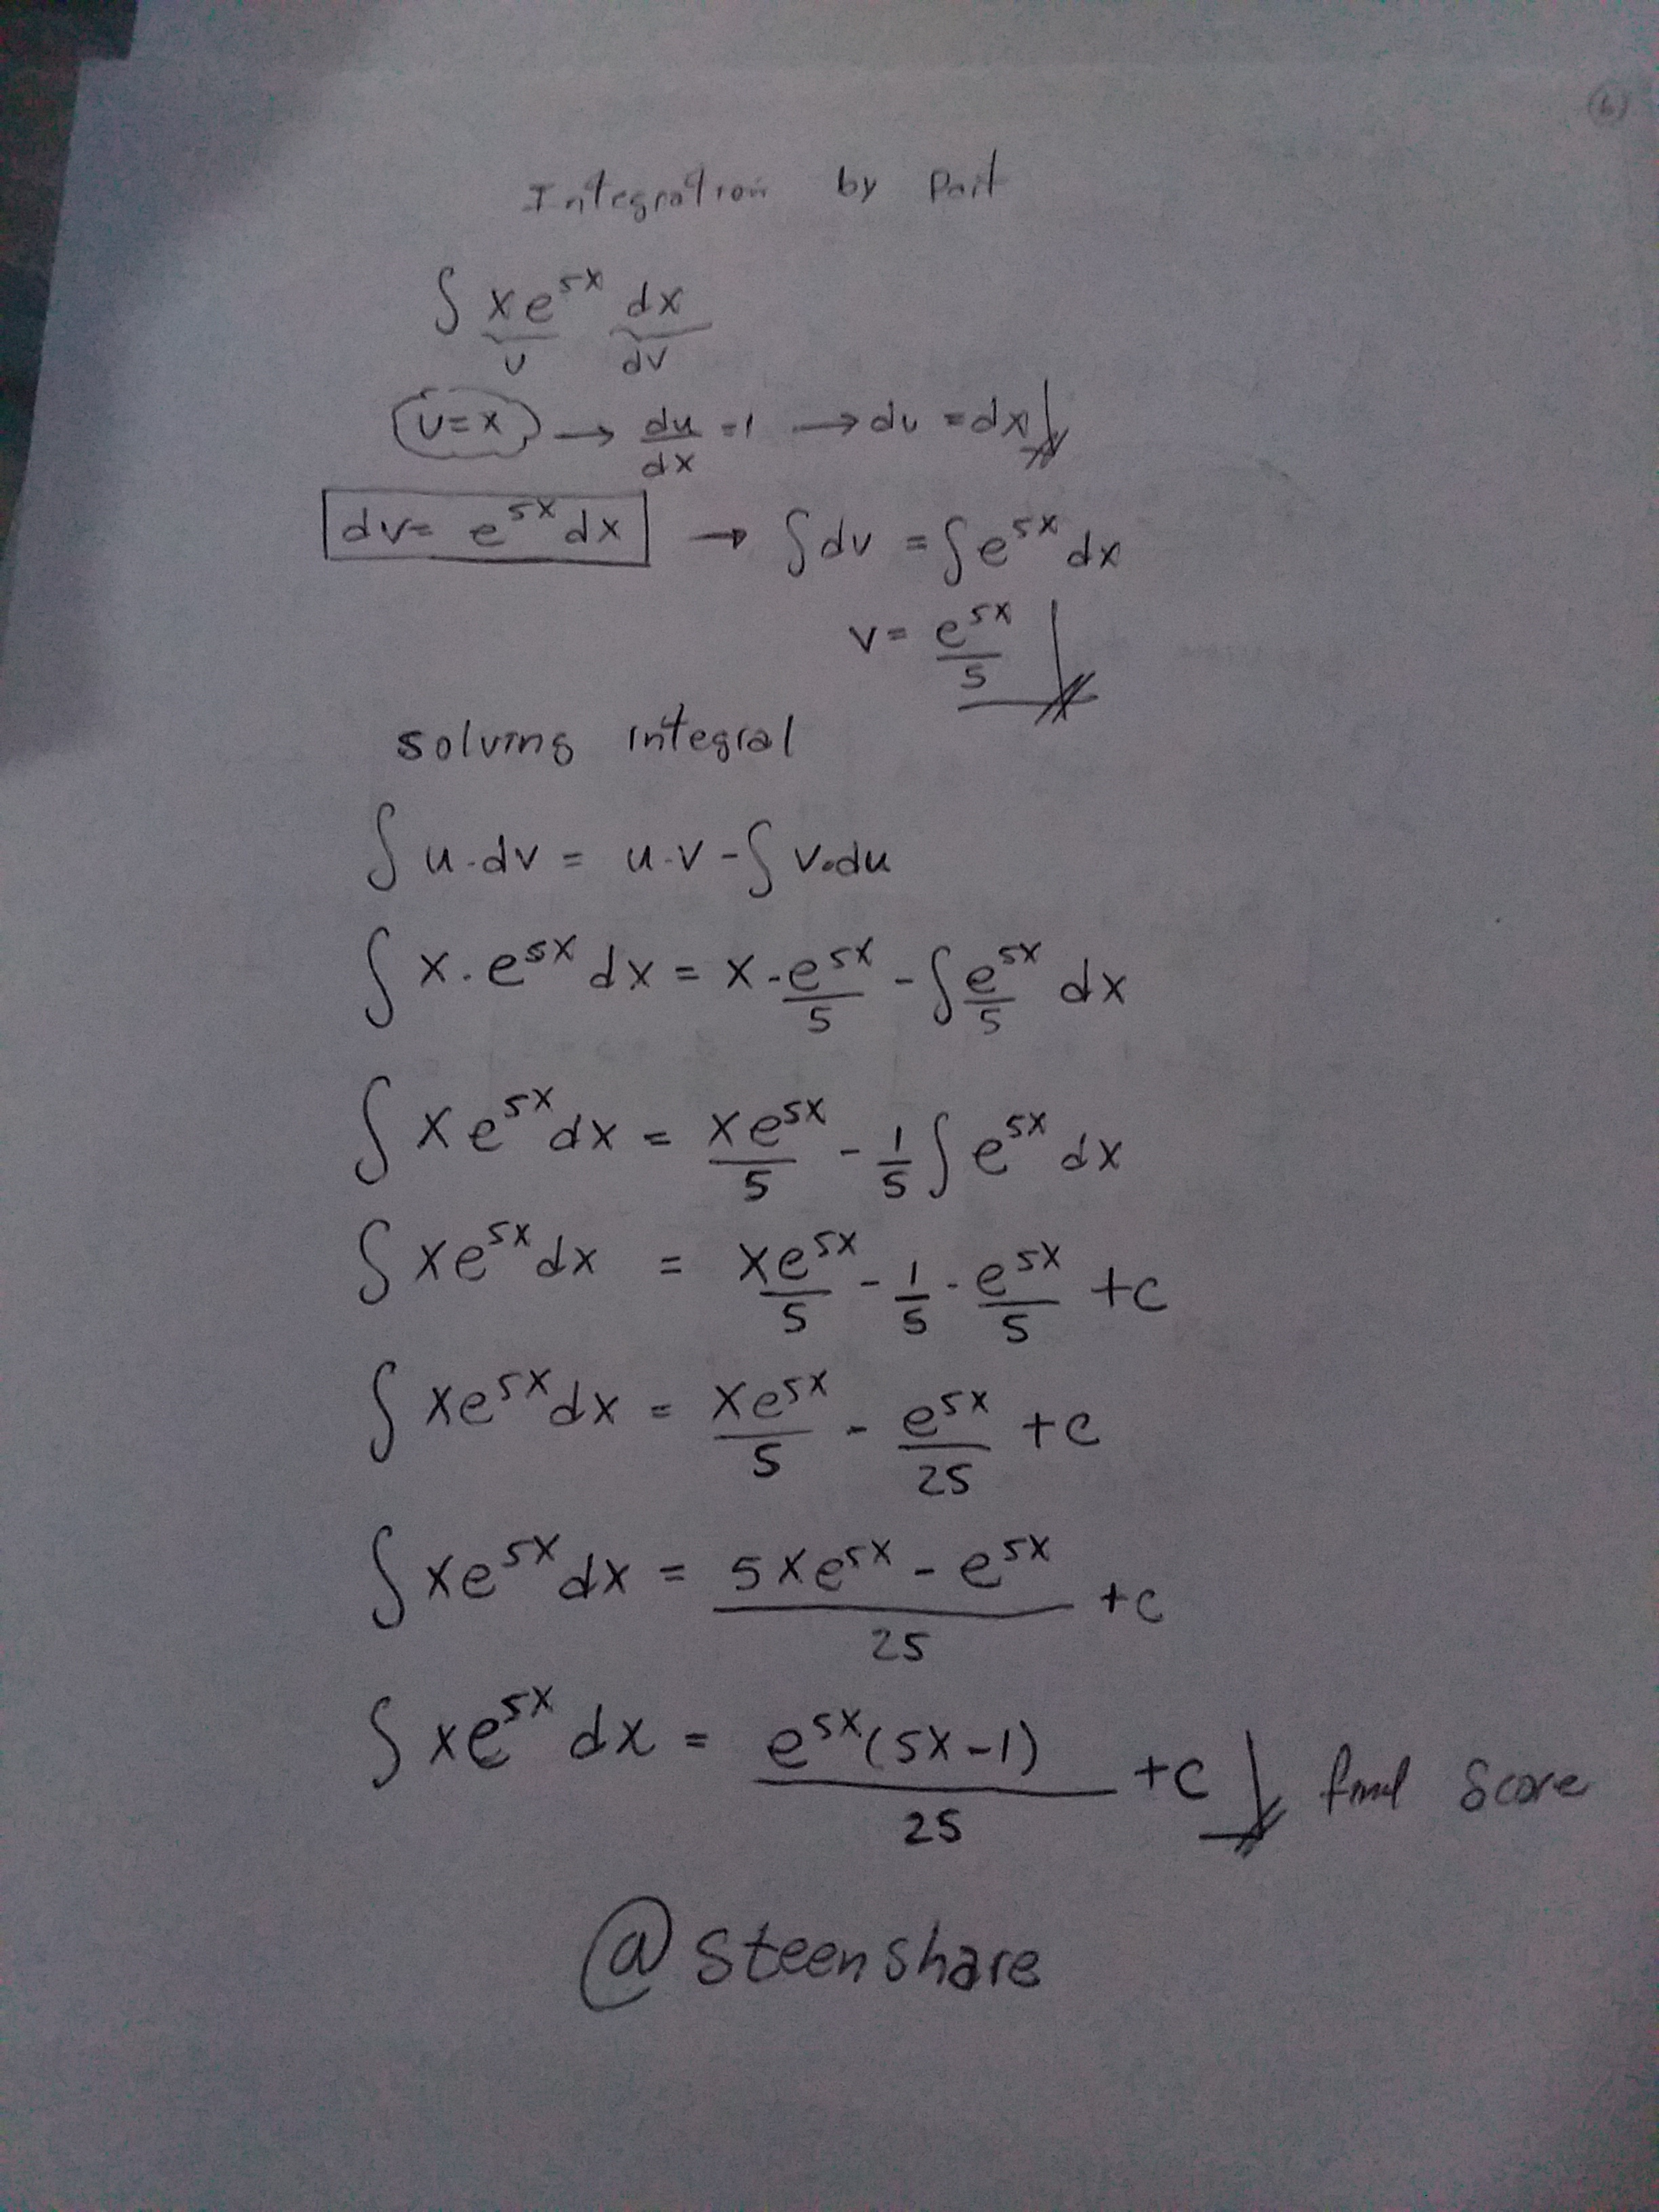 (6)
Integration by Part
∫ x e^{5x} dx
u dv
u=x → du/dx =1 → du =dx
dv= e^{5x} dx → ∫dv =∫e^{5x} dx
v= e^{5x}/5
solving integral
∫ u·dv = u·v -∫ v·du
∫ x·e^{5x} dx = x·e^{5x}/5 -∫e^{5x}/5 dx
∫ x e^{5x} dx = xe^{5x}/5 - 1/5 ∫e^{5x} dx
∫ xe^{5x} dx = xe^{5x}/5 - 1/5 · e^{5x}/5 +c
∫ xe^{5x} dx = xe^{5x}/5 - e^{5x}/25 +c
∫ xe^{5x} dx = (5xe^{5x} - e^{5x})/25 +c
∫ xe^{5x} dx = e^{5x}(5x-1)/25 +c final Score
@steenshare